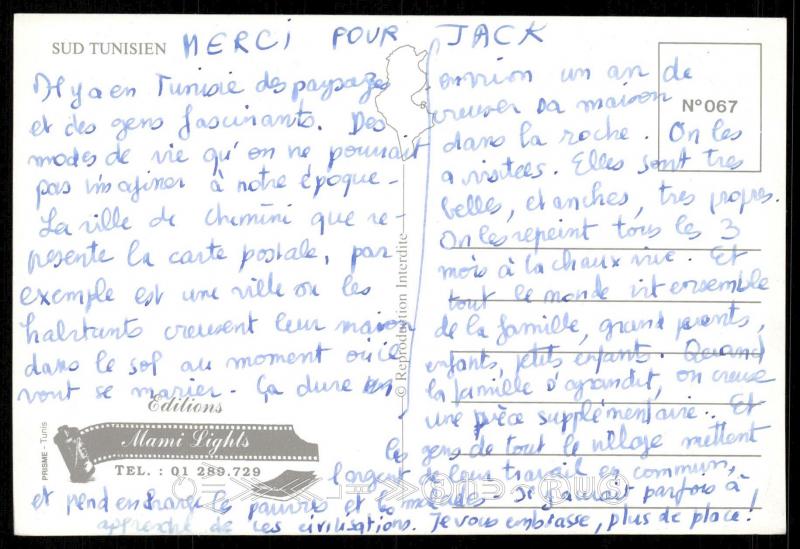 SUD TUNISIEN
MERCI POUR JACK
Il y a en Tunisie des paysages
et des gens fascinants. Des
modes de vie qu'on ne pourrait
pas imaginer à notre époque -
La ville de Chemini que re-
présente la carte postale, par
exemple est une ville où les
habitants creusent leur maison
dans le sol au moment où ils
vont se marier. Ça dure en
environ un an de
creuser sa maison
dans la roche. On les
a visitées. Elles sont très
belles, etanches, très propres.
On les repeint tous les 3
mois à la chaux vive. Et
tout le monde vit ensemble
de la famille, grand parents,
enfants, petits enfants. Quand
la famille s'agrandit, on creuse
une pièce supplémentaire. Et
les gens de tout le village mettent
l'argent de leur travail en commun,
et prend en charge les pauvres et les malades - Il y aurait parfois à
apprendre de ces civilisations. Je vous embrasse, plus de place !
N° 067
© Reproduction Interdite
Editions
Mami Lights
TEL. : 01 289.729
PRISME - Tunis